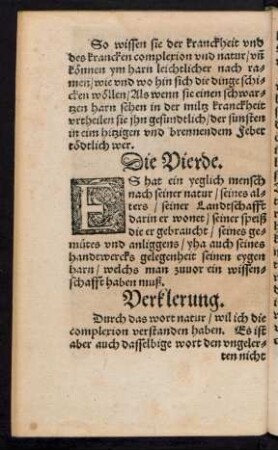 So wissen sie der kranckheit vnd
des krancken complexion vnd natur / vñ
können ym harn leichtlicher nach ra-
men / wie vnd wo hin sich die dinge schi-
cken wöllen / Als wenn sie einen schwar-
tzen harn sehen in der miltz kranckheit
vrtheilen sie jhn gesundtlich / der sunsten
in eim hitzigen vnd brennendem Feber
tödtlich wer.
Die Vierde.
ES hat ein yeglich mensch
nach seiner natur / seines al-
ters / seiner Landtschafft
darin er wonet / seiner speiß
die er gebraucht / seines ge-
mütes vnd anliggens / yha auch seines
handtwercks gelegenheit seinen eygen
harn / welchs man zuuor ein wissen-
schafft haben muß.
Verklerung.
Durch das wort natur / wil ich die
complexion verstanden haben. Es ist
aber auch dasselbige wort den vngeler-
ten nicht